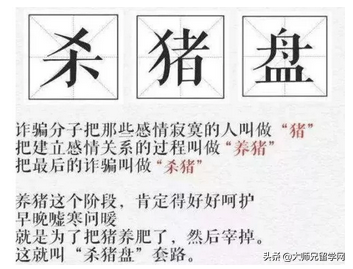 杀猪盘
诈骗分子把那些感情寂寞的人叫做“猪”
把建立感情关系的过程叫做“养猪”
把最后的诈骗叫做“杀猪”
养猪这个阶段，肯定得好好呵护
早晚嘘寒问暖
就是为了把猪养肥了，然后宰掉。
这就叫“杀猪盘”套路。
头条 @大师兄留学网